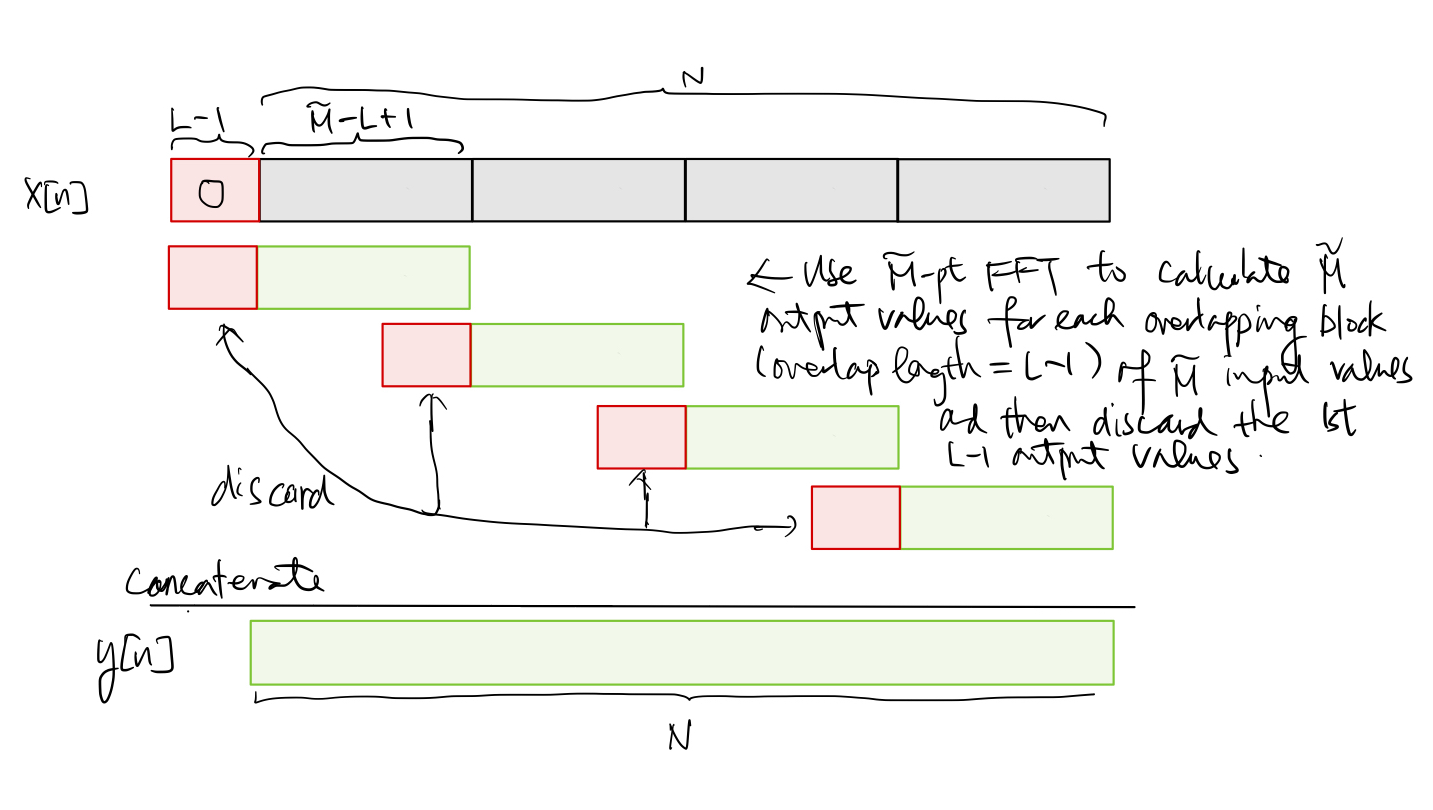 N
L-1
M̃-L+1
X[n]
0
← Use M̃-pt FFT to calculate M̃
output values for each overlapping block
(overlap length = L-1) of M̃ input values
ad then discard the 1st
L-1 output values.
discard
concatenate
y[n]
N